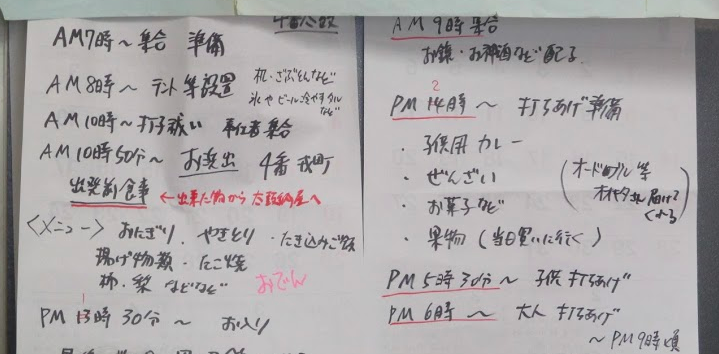 AM7時～集合 準備
AM8時～テント等設置
机・ざぶとんなど
氷やビール冷やすタル
など
AM10時～打ち祓い 奉仕者集合
AM10時50分～ お浜出 4番 戎町
出発前食事
←出来た物から
〈メニュー〉おにぎり、やきとり・たき込みご飯
揚げ物類・たこ焼
柿・梨 などなど おでん
PM 1時30分～ お入り
AM9時集合
お鏡・お神酒など配る
PM 2時～ 打ちあげ準備
・子供用カレー
・ぜんざい
・お菓子など
・果物（当日買いに行く）
オードブル等
届けて
くれる
PM5時30分～子供打ちあげ
PM6時～大人打ちあげ
～PM9時頃